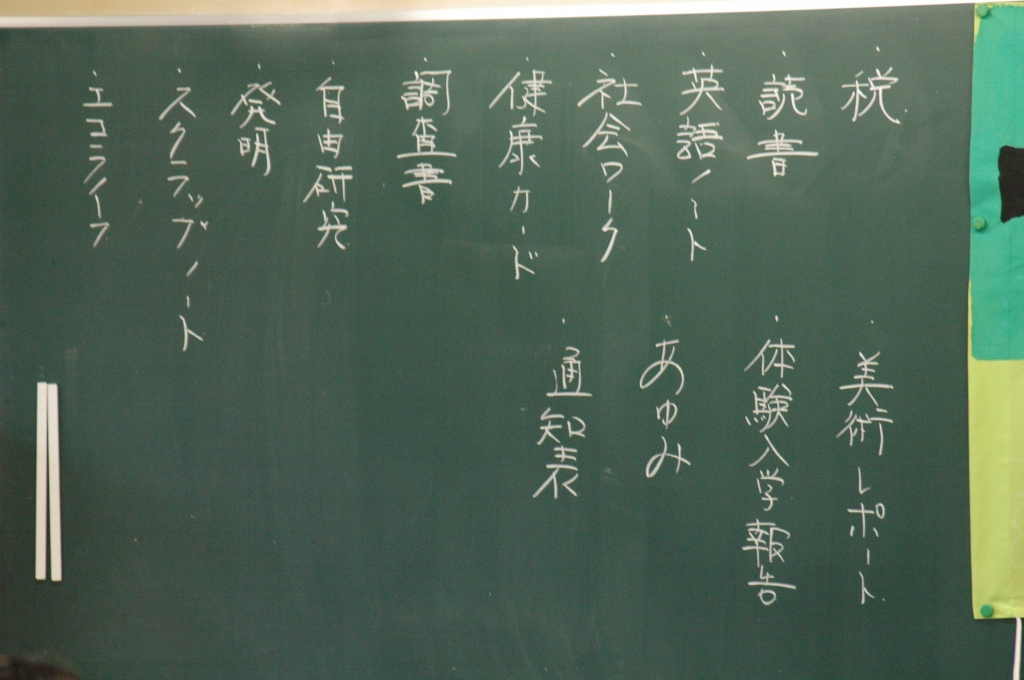 ・税
・読書
・英語ノート
・社会ワーク
・健康カード
・調査書
・自由研究
・発明
・スクラップノート
・エコライフ
・美術レポート
・体験入学報告
・あゆみ
・通知表